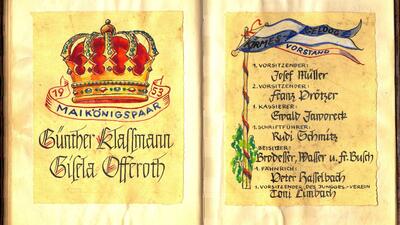 1953
MAIKÖNIGSPAAR
Günther Klaßmann
Gisela Offeroth
KIRMES- GELOOGS
VORSTAND
1. VORSITZENDER:
Josef Müller
2. VORSITZENDER:
Franz Prötzer
1. KASSIERER:
Ewald Jaworeck
1. SCHRIFTFÜHRER:
Rudi Schmitz
BEISITZER:
Brodesser, Walser u. Fr. Busch
1. FÄHNRICH:
Peter Hasselbach
1. VORSITZENDER DES JUNGGES.-VEREIN
Toni Limbach